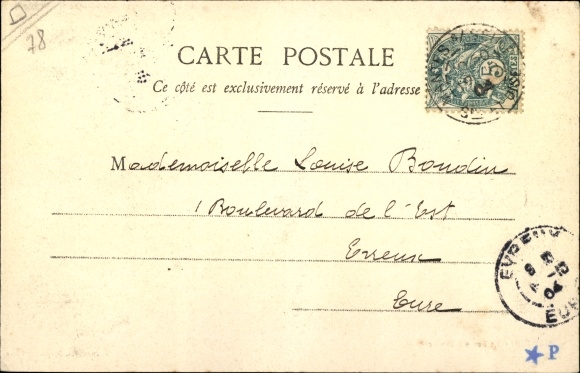 78
CARTE POSTALE
Ce côté est exclusivement réservé à l'adresse
Mademoiselle Louise Boudin
1 Boulevard de l'Est
Evreux
Eure
EVREUX
P